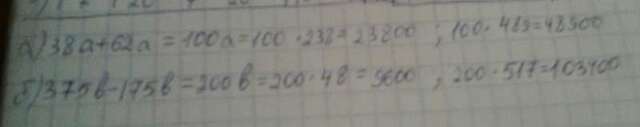 а) 38a+62a = 100a = 100 · 238 = 23800 ; 100 · 485 = 48500
б) 375b-175b = 200b = 200 · 48 = 9600 ; 200 · 517 = 103400